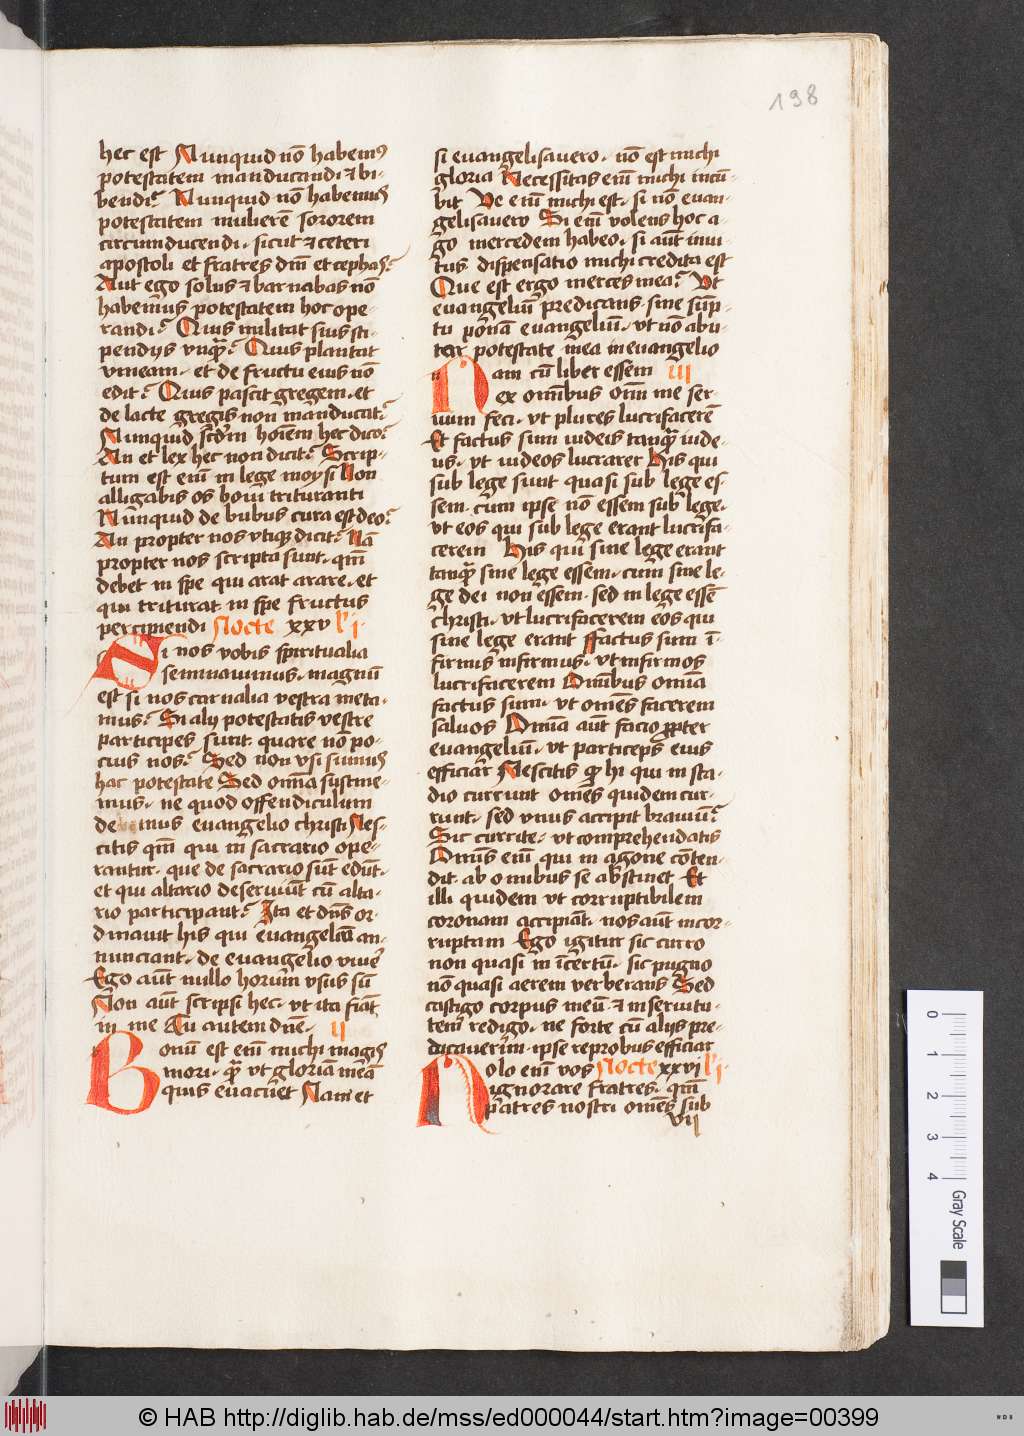 198
hec est Nunquid nō habemꝰ
potestatem manducandi ⁊ bi-
bendi? Nunquid non habemꝰ
potestatem mulierē sororem
circumducendi. sicut ⁊ ceteri
apostoli et fratres dnī et cephas?
Aut ego solus ⁊ barnabas nō
habemus potestatem hoc ope-
randi? Quis militat suis sti-
pendiis vnqᷓ? Quis plantat
vineam. et de fructu eius nō
edit? Quis pascit gregem. et
de lacte gregis non manducat?
Nunquid scdm hoīem hec dico?
An et lex hec non dicit? Scrip-
tum est enī in lege moysi Non
alligabis os boui trituranti
Nunquid de bubus cura est deo?
An propter nos vtiqꝫ dicit? Nā
propter nos scripta sunt. qm̄
debet in spe qui arat arare. et
qui triturat in spe fructus
percipiendi Nocte xxv l'i.
Si nos vobis spiritualia
seminauimus. magnū
est si nos carnalia vestra meta-
mus? Si alij potestatis vestre
participes sunt. quare nō po-
cius nos? Sed non vsi sumus
hac potestate Sed omīa sustine-
mus. ne quod offendiculum
demus euangelio christi Nes-
citis qm̄ qui in sacrario ope-
rantur. que de sacrario sūt edūt.
et qui altario deseruiūt cū alta-
rio participant? Ita et dn̄s or-
dinauit his qui euangeliū an-
nunciant. de euangelio viuē
Ego aūt nullo horum vsus sū
Non aūt scripsi hec. vt ita fiāt
in me Au autem dnē. ii
Bonū est enī michi magis
mori. qᷓ vt gloriam meā
quis euacuet Nam et
si euangelisauero. nō est michi
gloria Necessitas enī michi incū-
bit Ve enī michi est. si nō euan-
gelisauero Si enī volens hoc a-
go mercedem habeo. si aūt inui-
tus dispensatio michi credita est
Que est ergo merces mea? Vt
euangeliū predicans. sine sūp-
tu ponā euangeliū. vt nō abu-
tar potestate mea in euangelio
Nam cū liber essem iii
ex omībus om̄ me ser-
uum feci. vt plures lucrifacerē
Et factus sum iudeis tanqᷓ iude-
us. vt iudeos lucrarer His qui
sub lege sunt quasi sub lege es-
sem. cum ipse nō essem sub lege.
vt eos qui sub lege erant lucrifa-
cerem His qui sine lege erant
tanqᷓ sine lege essem. cum sine le-
ge dei non essem. sed in lege essē
christi. vt lucrifacerem eos qui
sine lege erant Factus sum ī-
firmis infirmus. vt infirmos
lucrifacerem Omībus omīa
factus sum. vt omēs facerem
saluos Omīa aūt facio ꝓpter
euangeliū. vt particeps eius
efficiar Nescitis qꝫ hi qui in sta-
dio currunt omēs quidem cur-
runt. sed vnus accipit brauiū?
Sic currite. vt comprehendatis
Omīs enī qui in agone cōten-
dit ab omībus se abstinet Et
illi quidem vt corruptibilem
coronam accipiāt. nos aūt incor-
ruptam Ego igitur sic curro
non quasi in īcertū. sic pugno
nō quasi aerem verberans Sed
castigo corpus meū ⁊ in seruitu-
tem redigo. ne forte cū alijs pre-
dicauerim. ipse reprobus efficiar
Nolo enī vos Nocte xxvi l'i.
ignorare fratres. qm̄
patres nostri omēs sub
vij
0 1 2 3 4 Gray Scale
© HAB http://diglib.hab.de/mss/ed000044/start.htm?image=00399